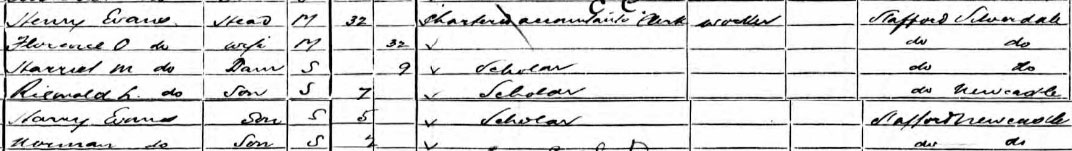 Henry Evans Head M 32 Chartered accountants Clerk worker Stafford Silverdale
Florence O do wife M 32 do do
Harriet M do Daur S 9 Scholar do do
Riginald L. do Son S 7 Scholar do Newcastle
Harry Evans Son S 5 Scholar Stafford Newcastle
Norman do Son S do do